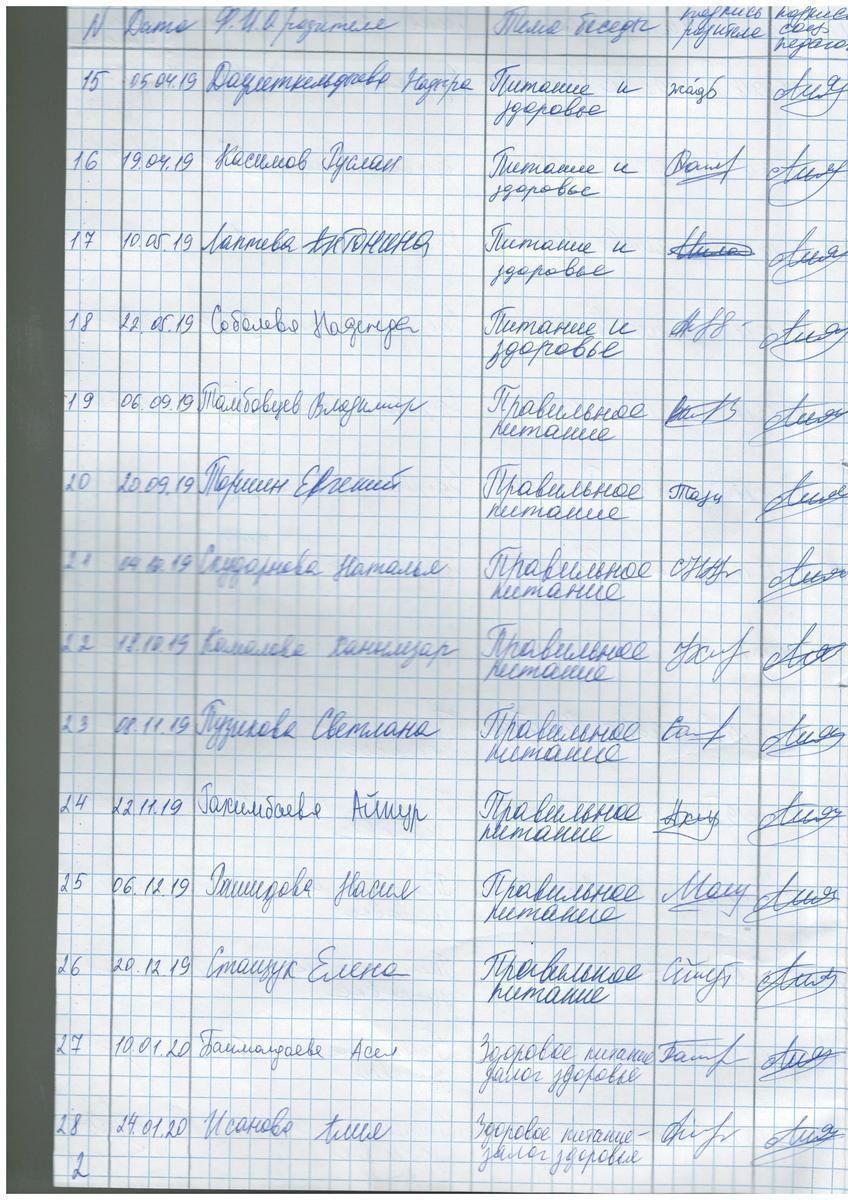 N Дата Ф.И.О родителя Тема беседы подпись родителя подпись соц. педаго
15 05.04.19 Даулеткельдиева Надира Питание и
здоровье
16 19.04.19 Касимов Руслан Питание и
здоровье
17 10.05.19 Лаптева Антонина Питание и
здоровье
18 22.05.19 Соболева Надежда Питание и
здоровье
19 06.09.19 Тамбовцев Владимир Правильное
питание
20 20.09.19 Евгений Правильное
питание
21 04.10.19 Скударнова Наталья Правильное
питание
22 18.10.19 Камалова Правильное
питание
23 08.11.19 Пузикова Светлана Правильное
питание
24 22.11.19 Айнур Правильное
питание
25 06.12.19 Рашидова Насия Правильное
питание
26 20.12.19 Стащук Елена Правильное
питание
27 10.01.20 Асел Здоровое питание
залог здоровье
28 24.01.20 Исанова Алия Здоровое питание-
залог здоровья
2